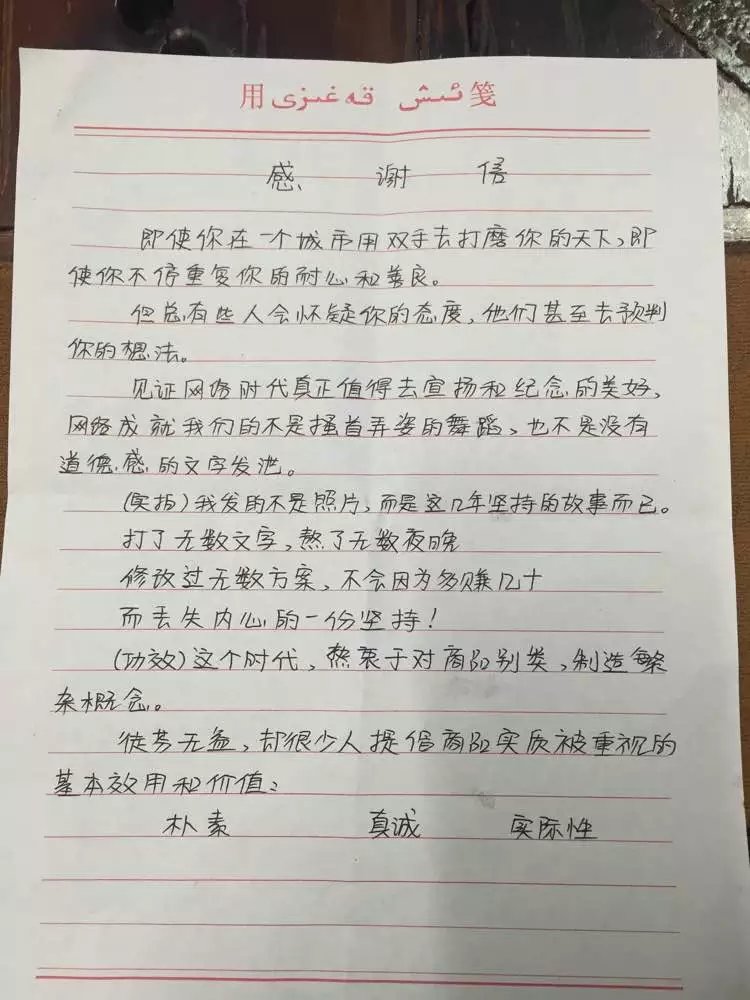 用 ئىش قەغىزى 笺
感 谢 信
即使你在一个城市用双手去打磨你的天下,即
使你不停重复你的耐心和善良。
但总有些人会怀疑你的态度,他们甚至去预判
你的想法。
见证网络时代真正值得去宣扬和纪念的美好,
网络成就我们的不是搔首弄姿的舞蹈,也不是没有
道德感的文字发泄。
(实拍)我发的不是照片,而是这几年坚持的故事而已。
打了无数文字,熬了无数夜晚
修改过无数方案,不会因为多赚几十
而丢失内心的一份坚持!
(功效)这个时代,热衷于对商品别类,制造繁
杂概念。
徒劳无益,却很少人提倡商品实质被重视的
基本效用和价值:
朴素 真诚 实际性